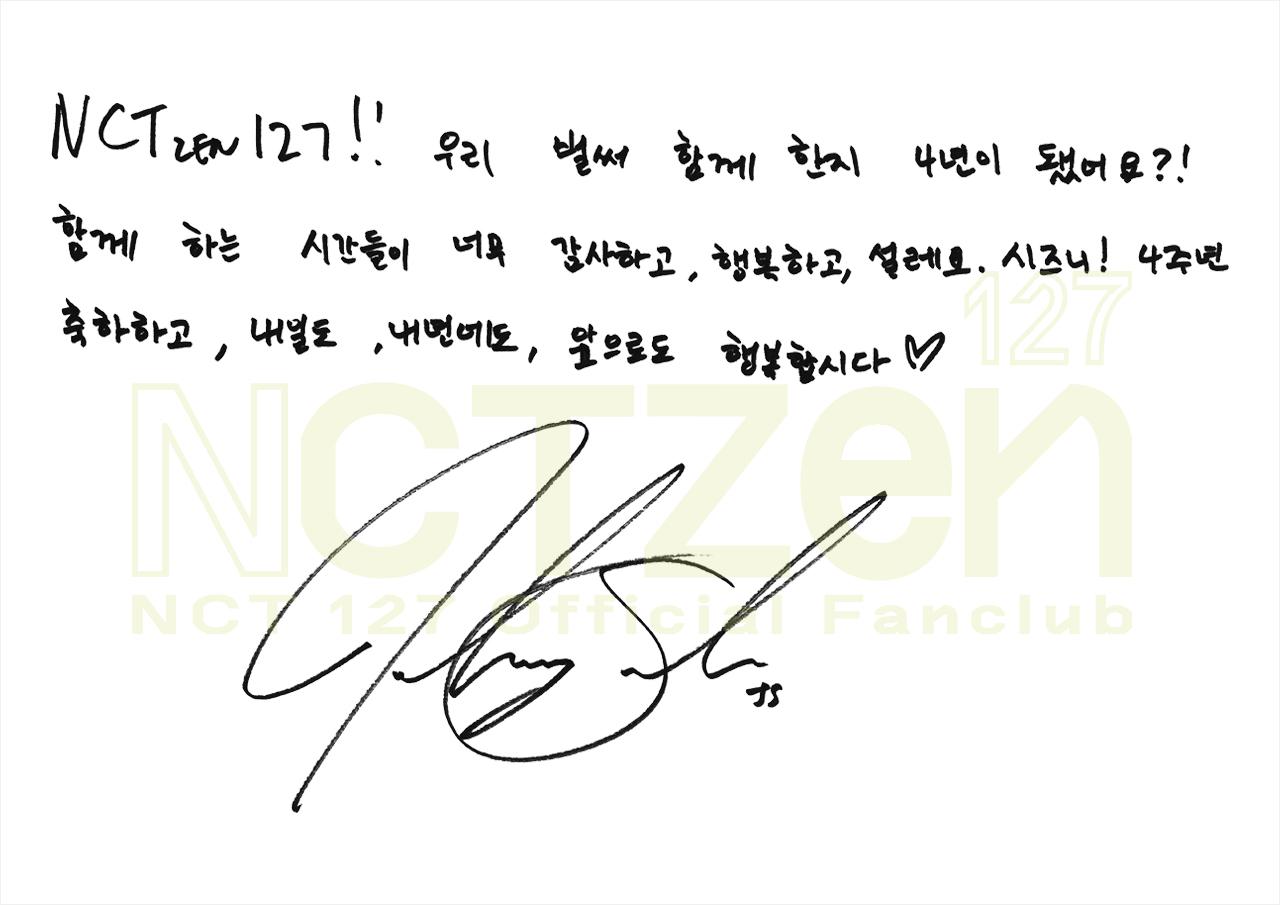 NCTZEN 127!! 우리 벌써 함께 한지 4년이 됐어요?!
함께 하는 시간들이 너무 감사하고, 행복하고, 설레요. 시즈니! 4주년
축하하고, 내일도, 내년에도, 앞으로도 행복합시다♡
127
NCTzen
NCT 127 Official Fanclub
JS